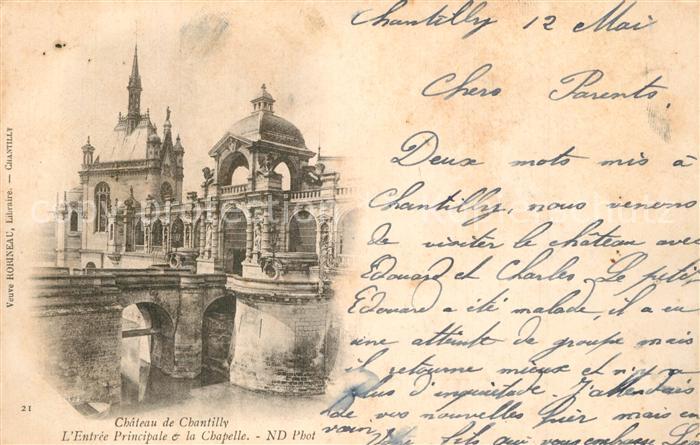 Chantilly 12 Mai
Chers Parents.
Deux mots mis à
Chantilly, nous venons
de visiter le château avec
Edouard et Charles. Le petit
Edouard a été malade, il a eu
une atteinte de groupe mais
il retourne mieux et n'y a
plus d'inquiétude. J'attendais
de vos nouvelles hier mais en
vain.
Votre fils qui vous embrasse
Veuve ROBINEAU, Libraire. — CHANTILLY
21
Château de Chantilly
L'Entrée Principale & la Chapelle. - ND Phot